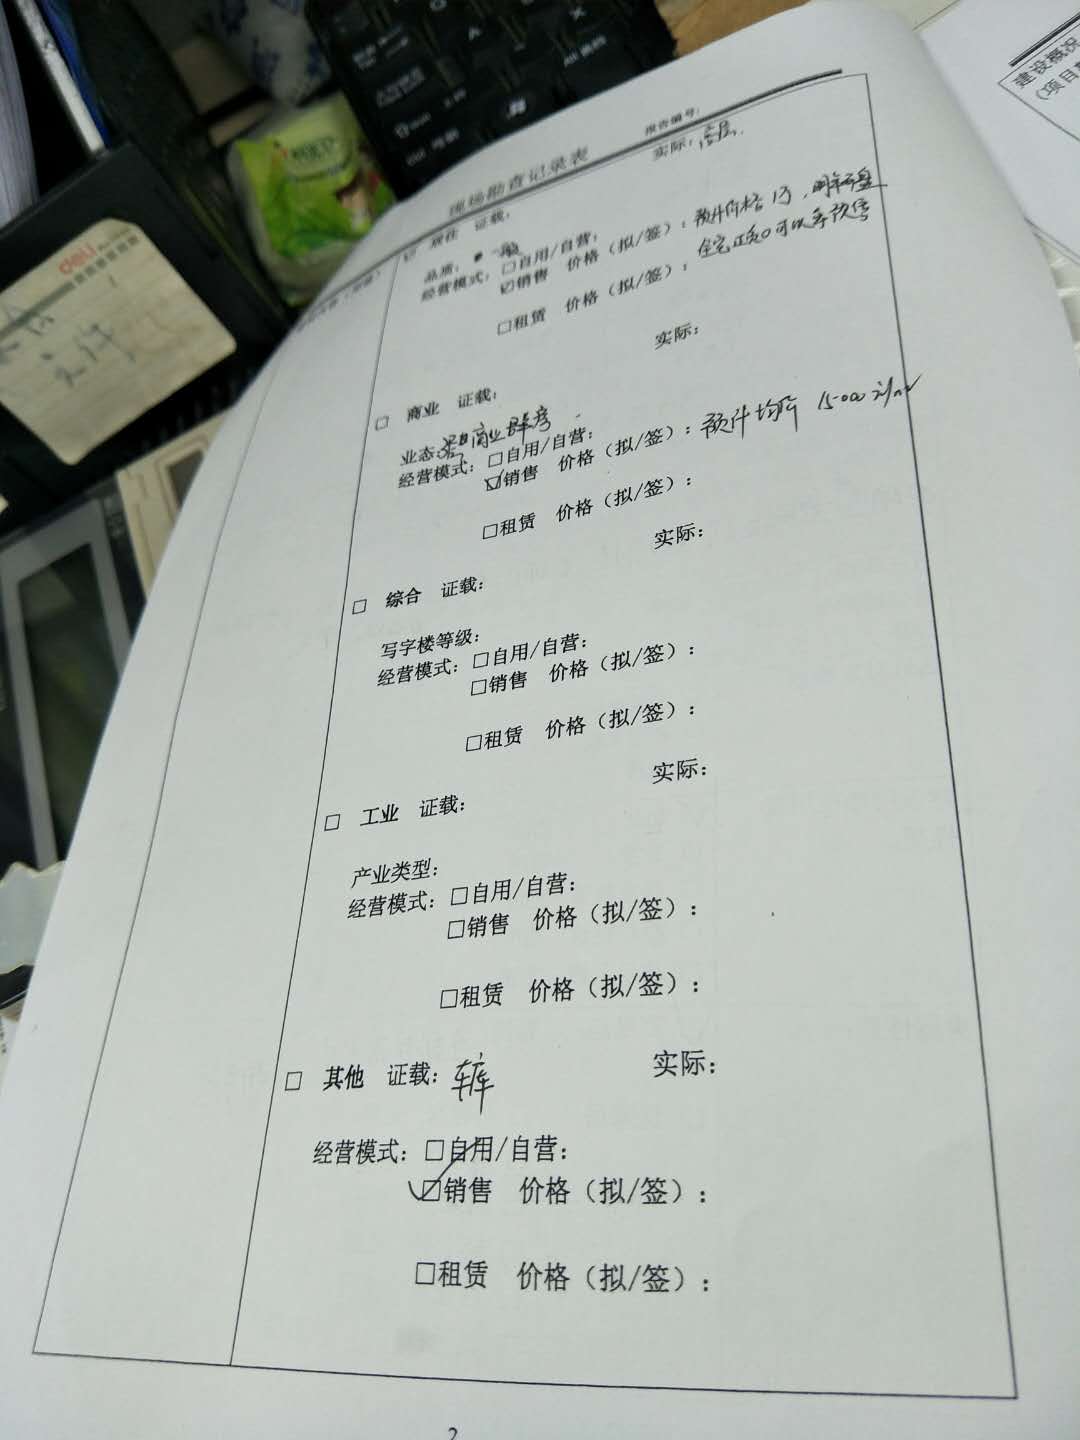 报告编号:
现场勘查记录表
☑ 居住 证载: 实际:高层.
品质: 一般
经营模式: □自用/自营:
☑销售 价格(拟/签):预计价格1万,明年开盘
□租赁 价格(拟/签):
□ 商业 证载: 实际:
业态: 商业群房
经营模式: □自用/自营:
☑销售 价格(拟/签):预计均价 15000元/m²
□租赁 价格(拟/签):
□ 综合 证载: 实际:
写字楼等级:
经营模式: □自用/自营:
□销售 价格(拟/签):
□租赁 价格(拟/签):
□ 工业 证载: 实际:
产业类型:
经营模式: □自用/自营:
□销售 价格(拟/签):
□租赁 价格(拟/签):
□ 其他 证载:车库 实际:
经营模式: □自用/自营:
☑销售 价格(拟/签):
□租赁 价格(拟/签):
2
建设概况
(项目
deli
文件
Alt
A
X